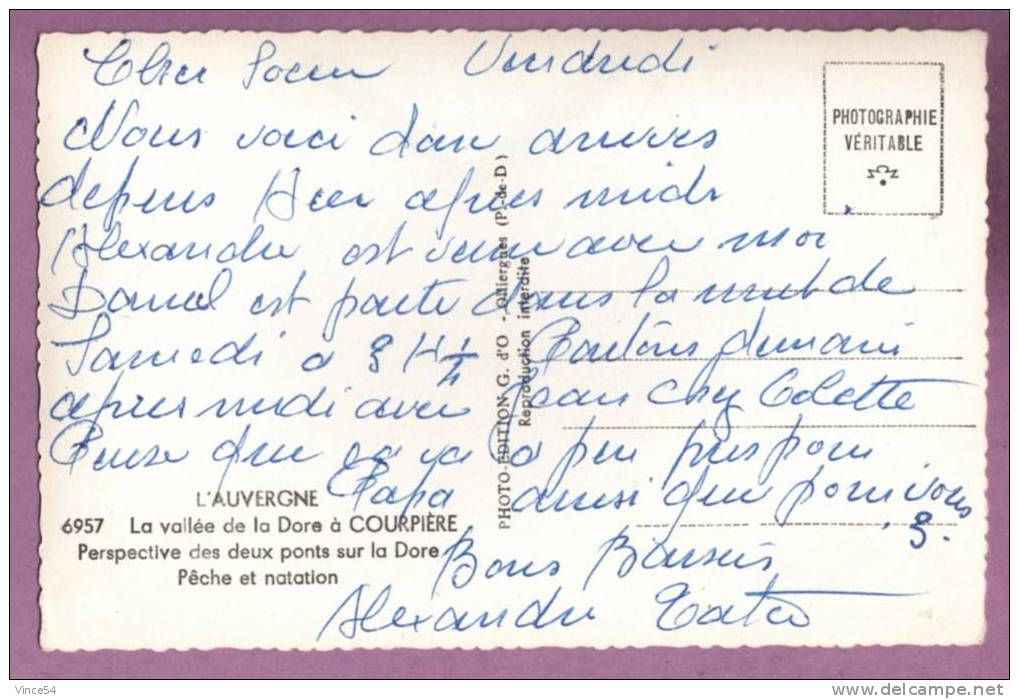 Cher Soeur Vendredi
PHOTOGRAPHIE
VÉRITABLE
Nous voici dan arrives
depeus Hier après midi
Alexandre est venu avec moi
Daniel est parti dans la nuit de
Samedi a 3 H 1/2 Partons demain
apres midi avec Jean chez Colette
Pense que ca va a peu pres pour
Papa ainsi que pour vous
3.
Bons Baisers
Alexandre
L'AUVERGNE
6957 La vallée de la Dore à COURPIÈRE
Perspective des deux ponts sur la Dore
Pêche et natation
PHOTO-ÉDITION G. d'O - Olliergues (P.-de-D)
Reproduction interdite
Vince54
www.delcampe.net